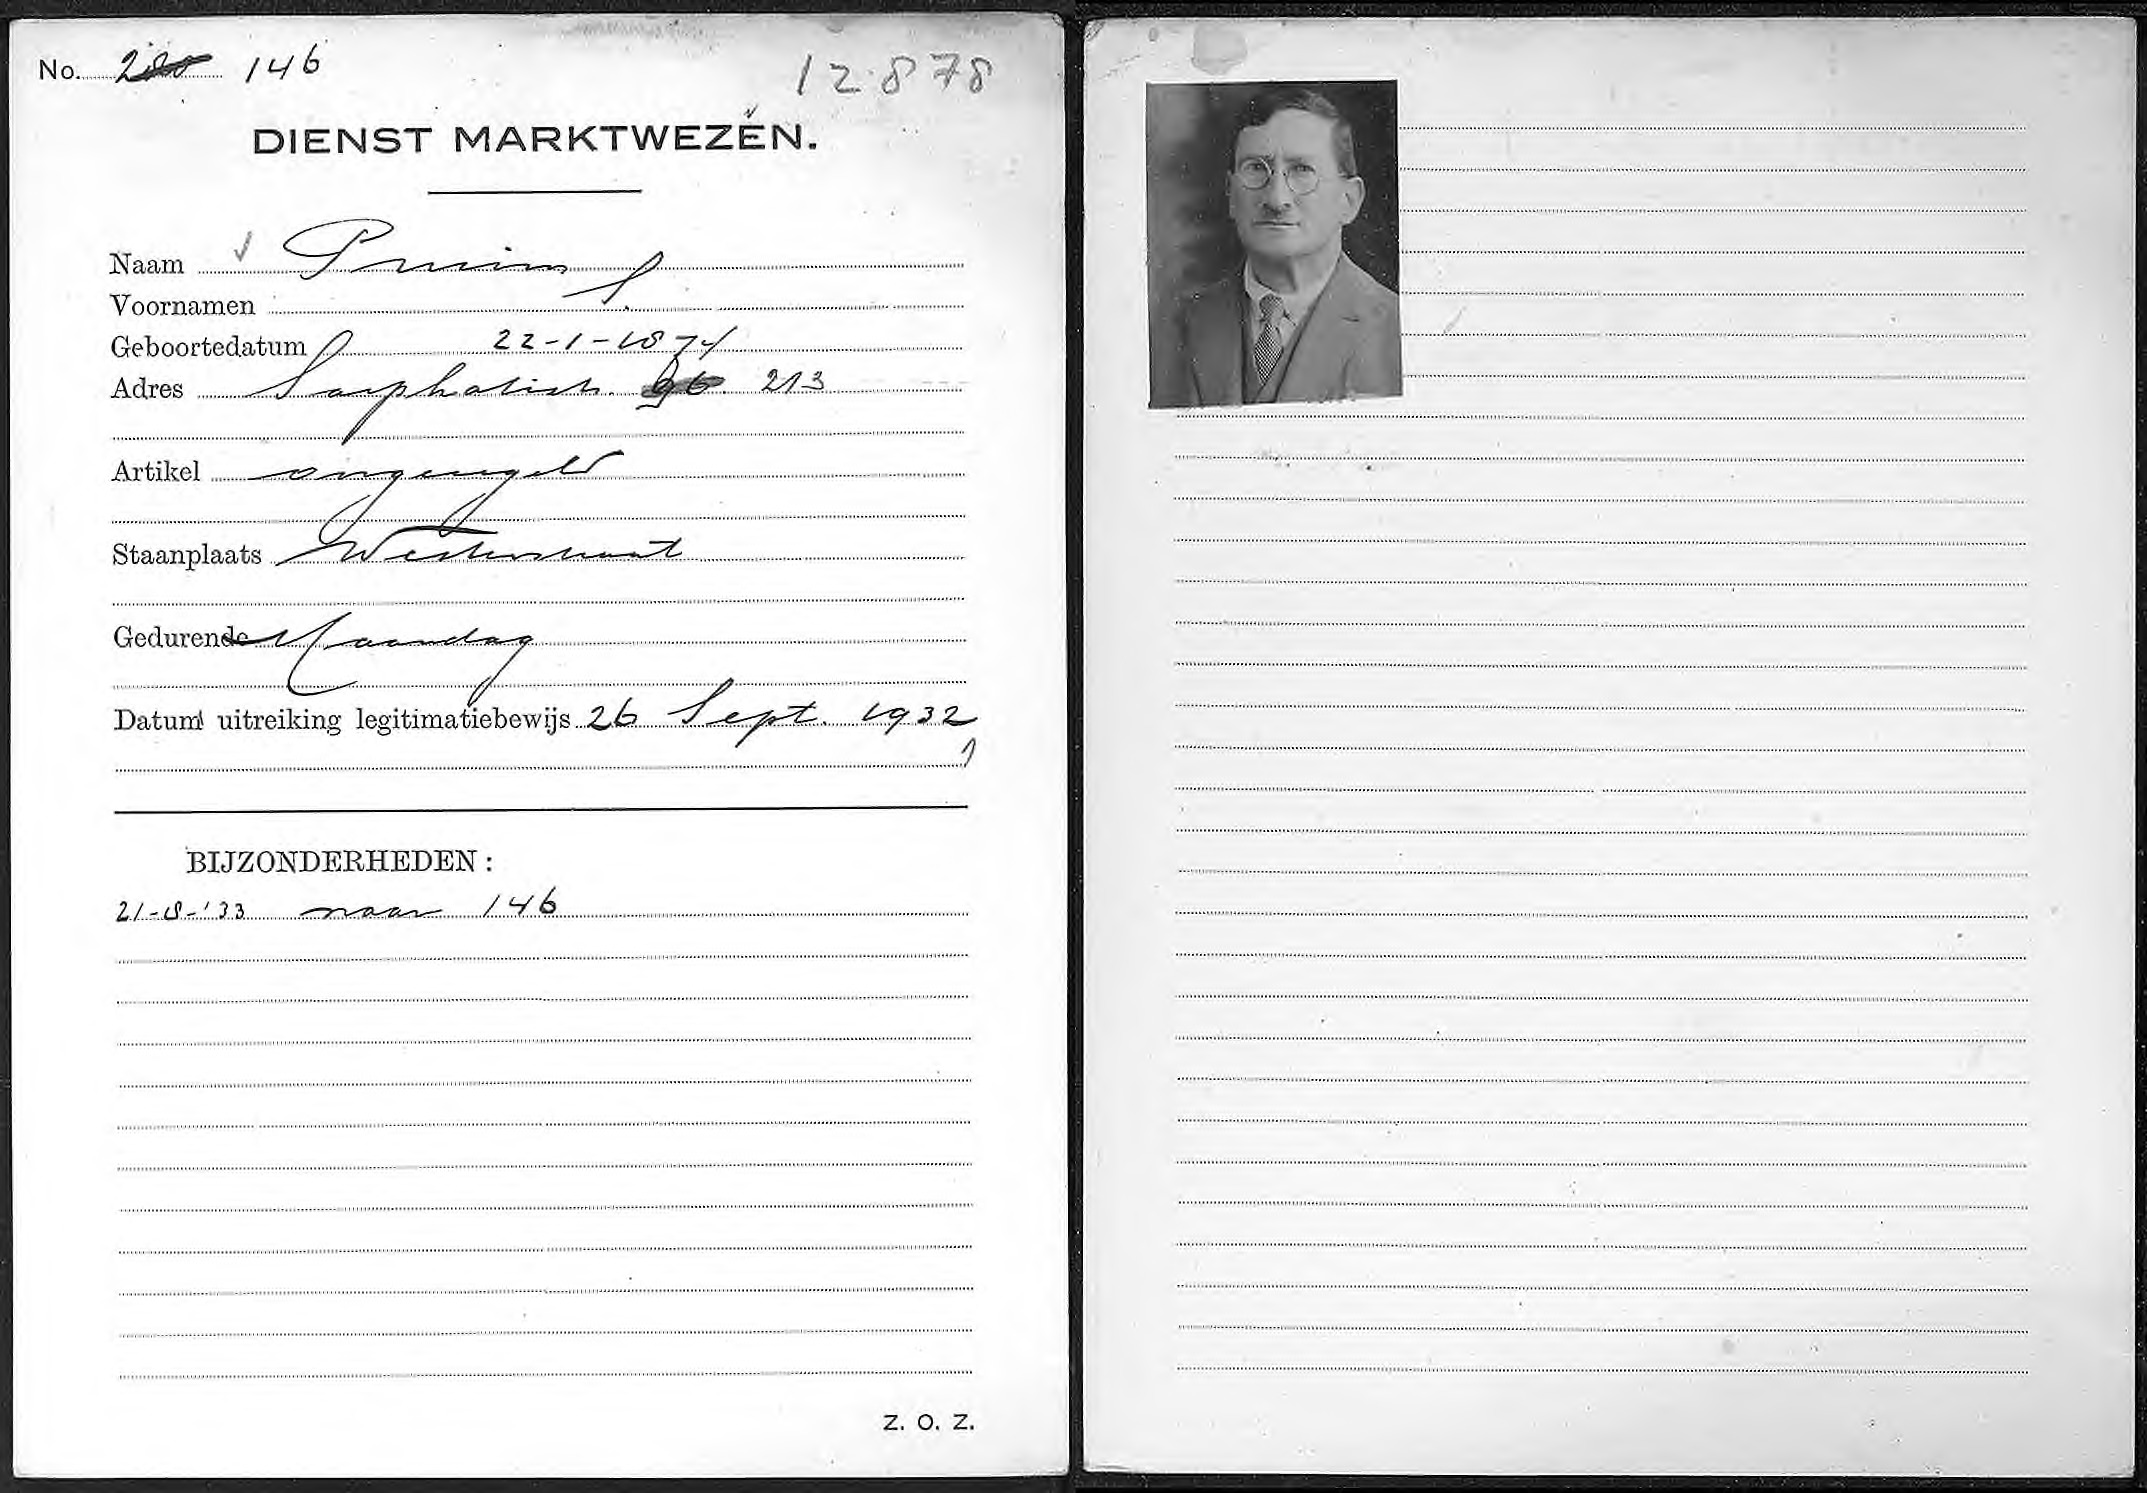 No. 146
12878
DIENST MARKTWEZEN.
Naam Pruim
Voornamen S.
Geboortedatum 22-1-1874
Adres Sarphatistr. 96 213
Artikel ongeregeld
Staanplaats Westerstraat
Gedurende Maandag
Datum uitreiking legitimatiebewijs 26 Sept. 1932
BIJZONDERHEDEN :
21-8-'33 naar 146
Z. O. Z.